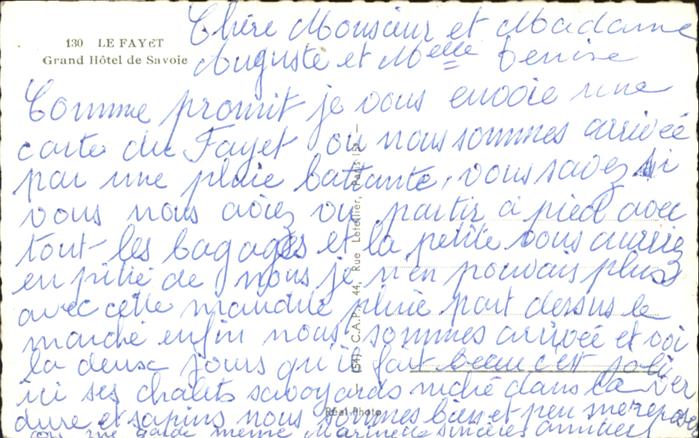 130 LE FAYET
Grand Hôtel de Savoie
Chère Monsieur et Madame
Auguste et Melle Denise
Comme promit je vous envoie une
carte du Fayet ou nous sommes arrivée
par une pluie battante, vous savez si
vous nous aviez vu partir a pied avec
tout les bagages et la petite vous auriez
eu pitié de nous je n'en pouvais plus
avec cette maudite pluie part dessus le
marché enfin nous sommes arrivée et voi
la deux jours qu'il fait beau c'est joli
ici ses chalets savoyards niché dans la ver
dure et sapins nous sommes bien et peu me reposé
on me garde même Marinette sincères amitiés
(ST) C.A.P. 44, Rue Letellier, PARIS
Real Photo